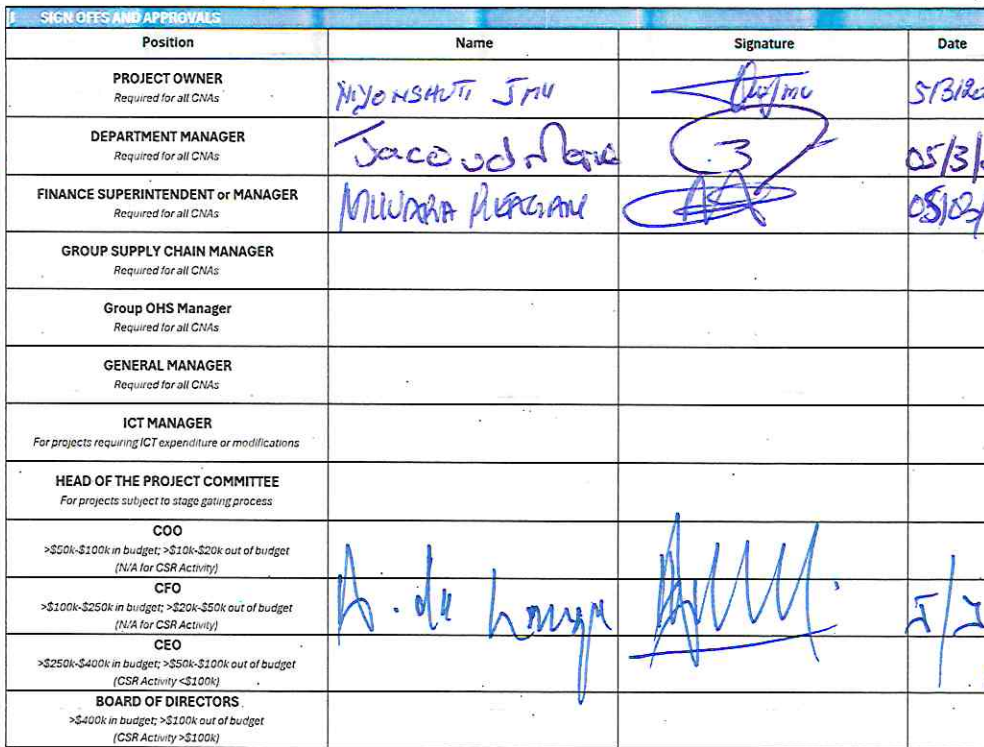 SIGN OFFS AND APPROVALS
Position Name Signature Date
PROJECT OWNER
Required for all CNAs
NIYONSHUTI JMV
DEPARTMENT MANAGER
Required for all CNAs
05/3/
FINANCE SUPERINTENDENT or MANAGER
Required for all CNAs
05/03/
GROUP SUPPLY CHAIN MANAGER
Required for all CNAs
Group OHS Manager
Required for all CNAs
GENERAL MANAGER
Required for all CNAs
ICT MANAGER
For projects requiring ICT expenditure or modifications
HEAD OF THE PROJECT COMMITTEE
For projects subject to stage gating process
COO
>$50k-$100k in budget; >$10k-$20k out of budget
(N/A for CSR Activity)
CFO
>$100k-$250k in budget; >$20k-$50k out of budget
(N/A for CSR Activity)
A. de
CEO
>$250k-$400k in budget; >$50k-$100k out of budget
(CSR Activity <$100k)
BOARD OF DIRECTORS
>$400k in budget; >$100k out of budget
(CSR Activity >$100k)